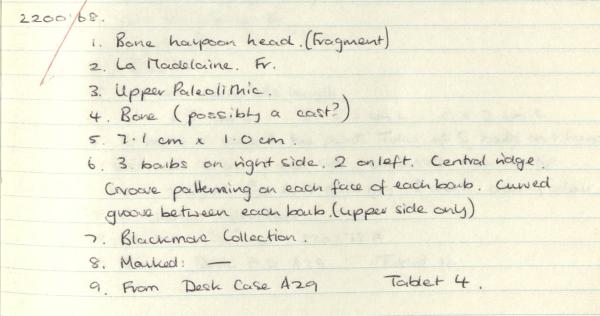 2200:68.
1. Bone harpoon head. (Fragment)
2. La Madelaine. Fr.
3. Upper Paleolithic.
4. Bone (possibly a cast?)
5. 7.1 cm x 1.0 cm.
6. 3 barbs on right side. 2 on left. Central ridge.
Groove patterning on each face of each barb. Curved
groove between each barb. (upper side only)
7. Blackmore Collection.
8. Marked: —
9. From Desk Case A29 Tablet 4.